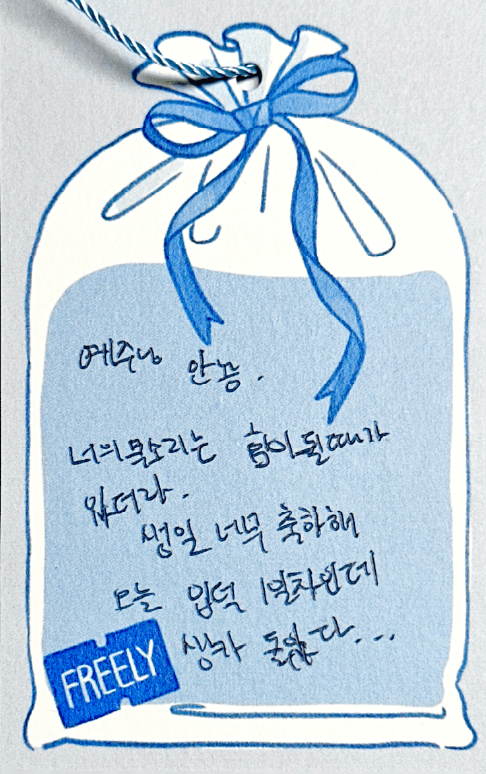 예주닝 안뇽.
너의 목소리는 힘이 될때가
있더라.
생일 너무 축하해
오늘 입덕 1일차인데
생카 돌았다...
FREELY